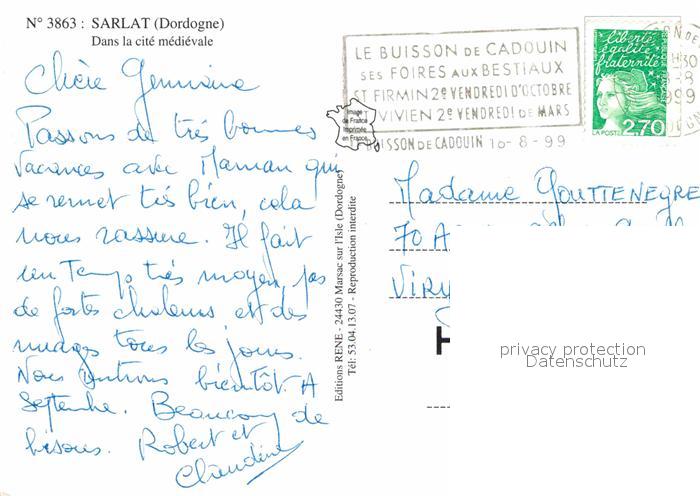 N° 3863 : SARLAT (Dordogne)
Dans la cité médiévale
Chère Germaine
Passons de très bonnes
vacances avec Maman qui
se remet très bien, cela
nous rassure. Il fait
un temps très moyen, pas
de fortes chaleurs et des
nuages tous les jours.
Nous rentrons bientôt. A
Septembre. Beaucoup de
bisous. Robert et
Claudine
Editions RENE - 24430 Marsac sur l'Isle (Dordogne)
Tél: 53.04.13.07 - Reproduction interdite
Image
de France
Imprimée
en France
LE BUISSON DE CADOUIN
SES FOIRES AUX BESTIAUX
ST FIRMIN 2e VENDREDI D'OCTOBRE
VIVIEN 2e VENDREDI DE MARS
BUISSON DE CADOUIN 10-8-99
liberté
égalité
fraternité
LA POSTE 2,70
Madame GOUTTENEGRE
70 A
VIRY
privacy protection
Datenschutz